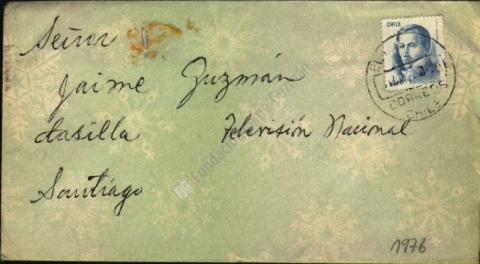 CHILE
CORREOS
CHILE
Señor
Jaime Guzmán
Casilla Televisión Nacional
Santiago
1976